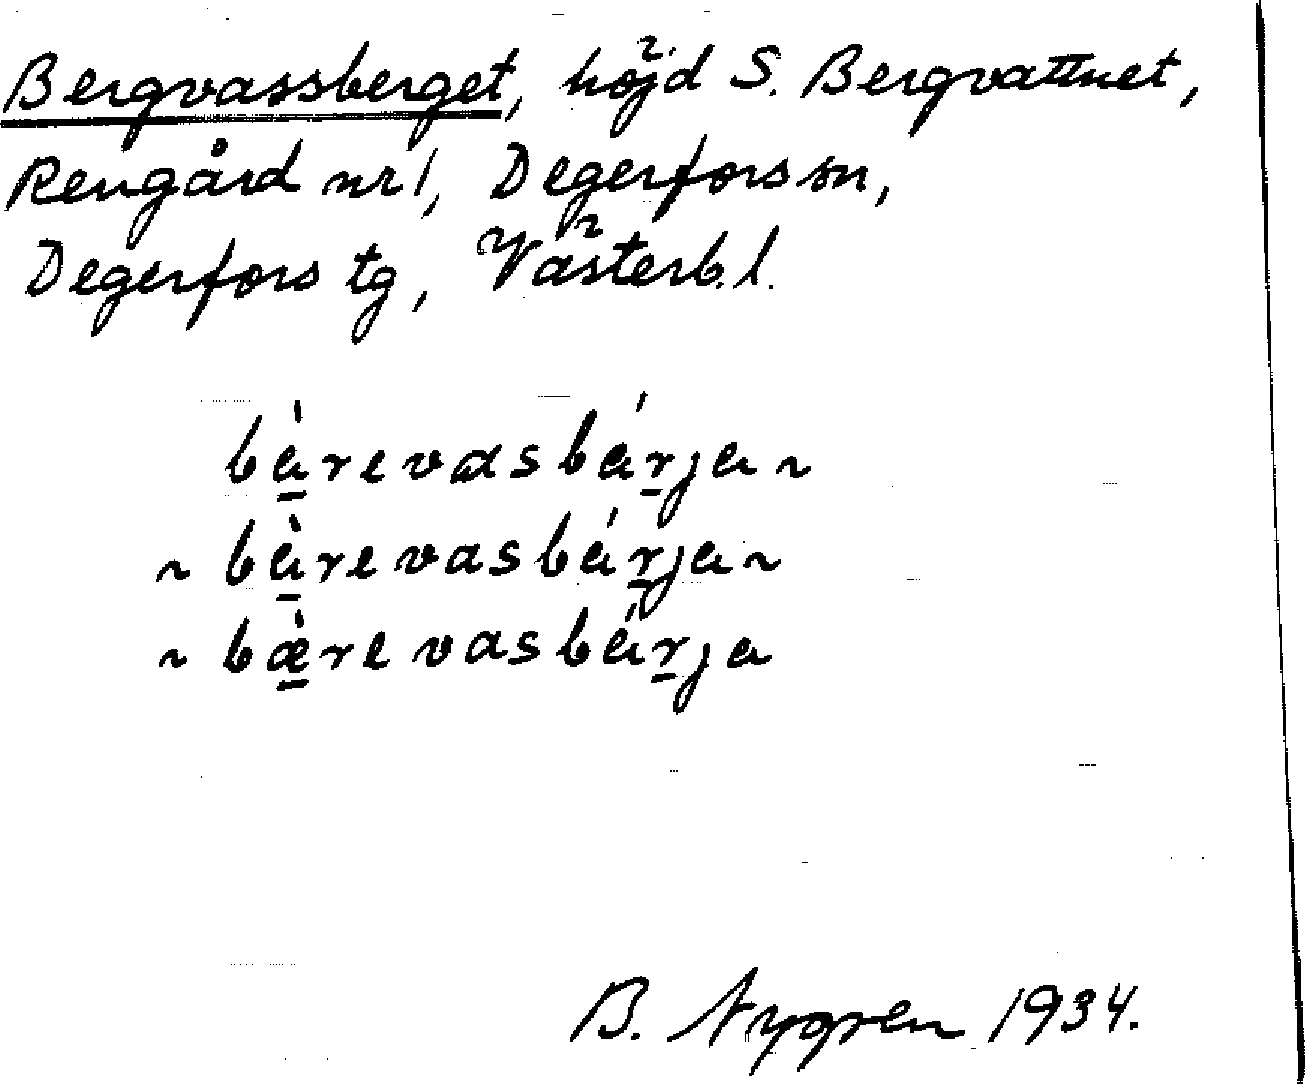 Bergvassberget, höjd S. Bergvattnet,
Rengård nr 1, Degerfors sn,
Degerfors tg, Västerb. l.
bà̱revɑsbár̠ja ~
~ bà̱revasbár̠ja ~
~ bæ̱̀revasbár̠ja
B. Nygren 1934.